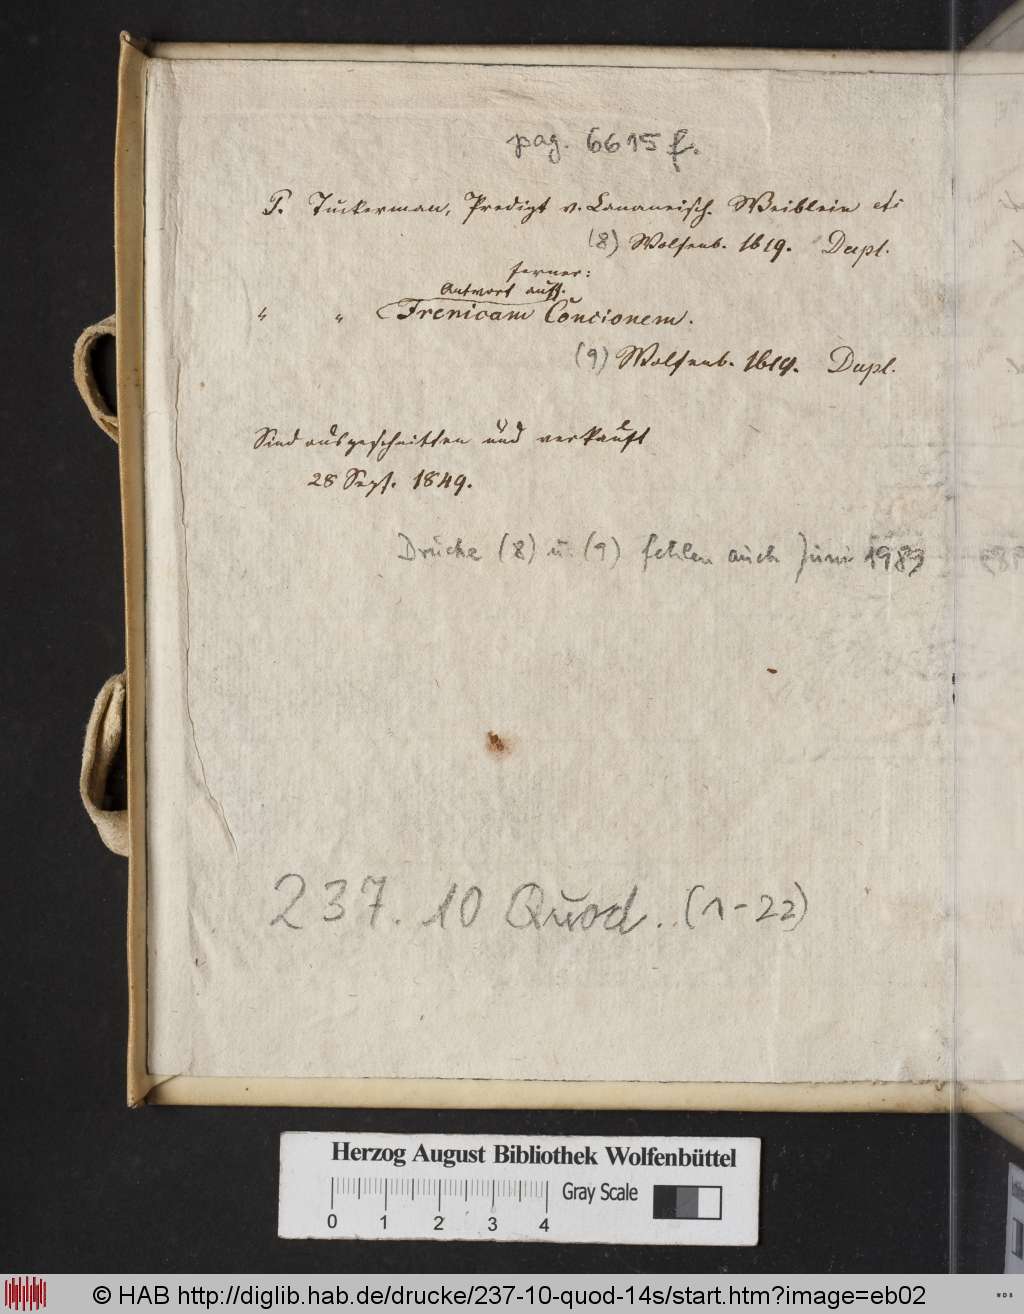 pag. 6615 f.
P. Tuckerman, Predigt v. Cananeisch. Weiblein etc
(8) Wolfenb. 1619. Dupl.
ferner:
Antwort auff.
" " Frenicam Concionem.
(9) Wolfenb. 1619. Dupl.
Sind ausgeschnitten und verkauft
28 Sept. 1849.
Drucke (8) u. (9) fehlen auch Juni 1983
237. 10 Quod. (1-22)
Herzog August Bibliothek Wolfenbüttel
Gray Scale
0 1 2 3 4
© HAB http://diglib.hab.de/drucke/237-10-quod-14s/start.htm?image=eb02